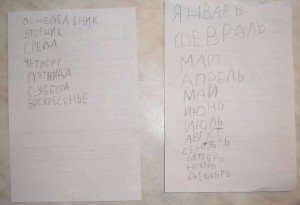 ПОНЕДЕЛЬНИК
ВТОРНИК
СРЕДА
ЧЕТВЕРГ
ПЯТНИЦА
СУББОТА
ВОСКРЕСЕМБЕ
ЯНВАРЬ
ФЕВРАЛЬ
МАРТ
АПРЕЛЬ
МАЙ
ИЮНЬ
ИЮЛЬ
АВГУСТ
СЕНТЯБРЬ
ОКТЯБРЬ
НОЯБРЬ
ДЕКАБРЬ